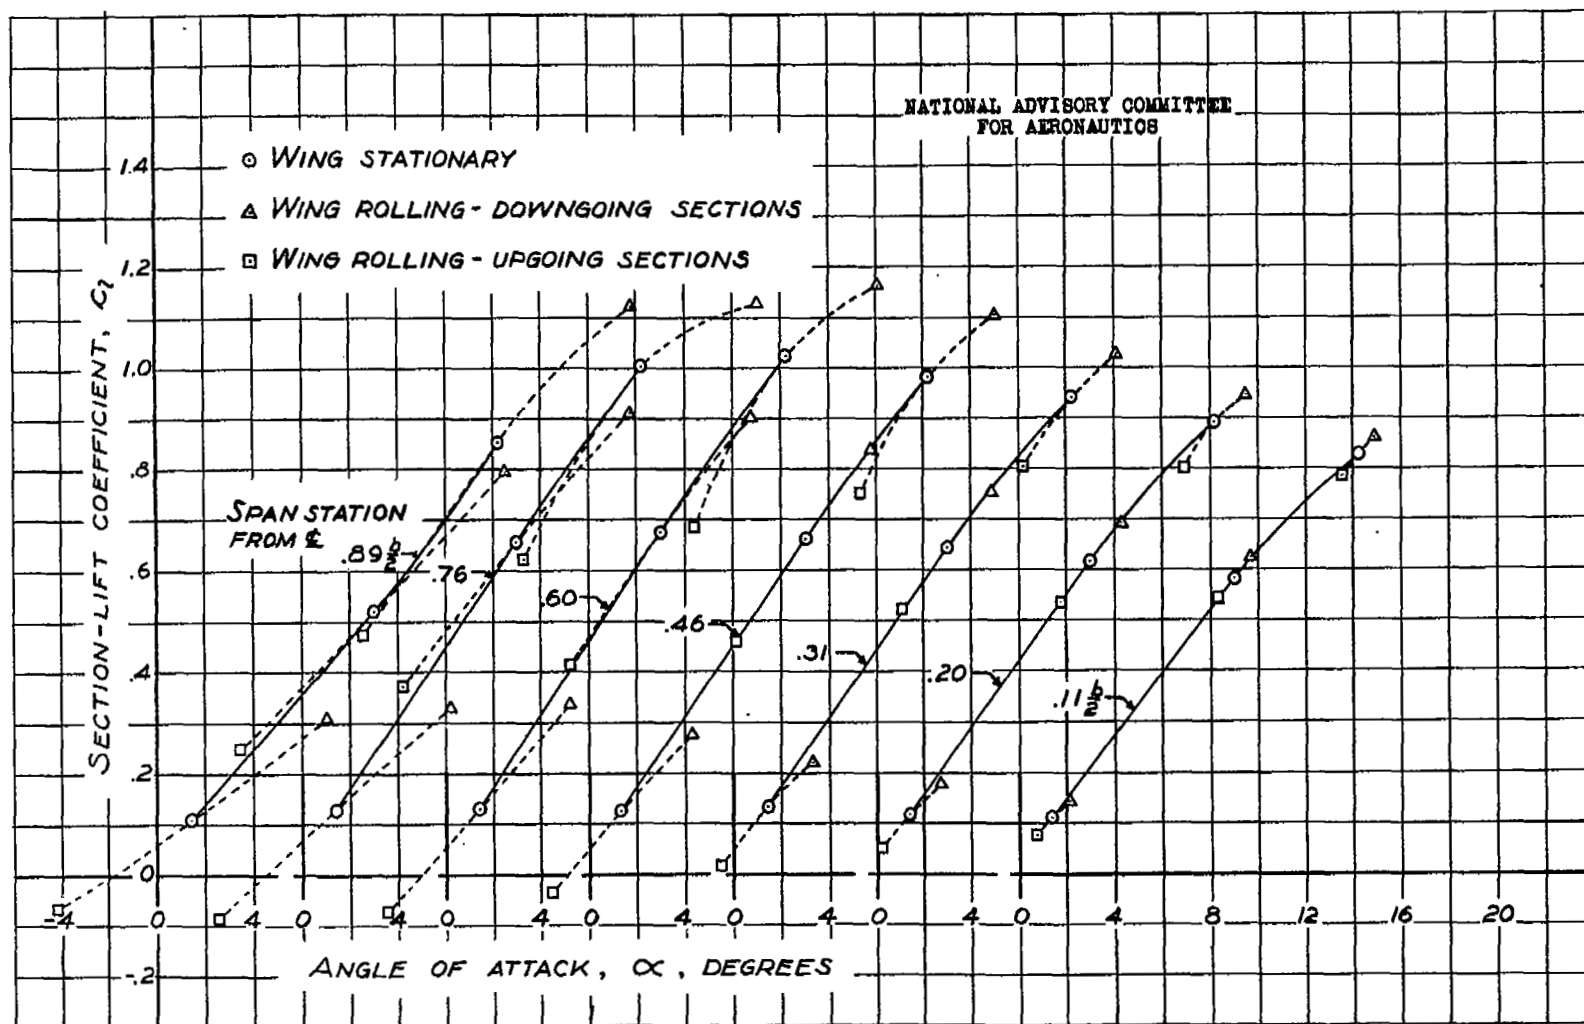 NATIONAL ADVISORY COMMITTEE
FOR AERONAUTICS
⊙ WING STATIONARY
△ WING ROLLING - DOWNGOING SECTIONS
⊡ WING ROLLING - UPGOING SECTIONS
SECTION-LIFT COEFFICIENT, c_l
1.4
1.2
1.0
.8
.6
.4
.2
0
-.2
SPAN STATION
FROM ℄
.89 b/2
.76
.60
.46
.31
.20
.11 b/2
-4 0 4 0 4 0 4 0 4 0 4 0 4 0 4 8 12 16 20
ANGLE OF ATTACK, ∝, DEGREES